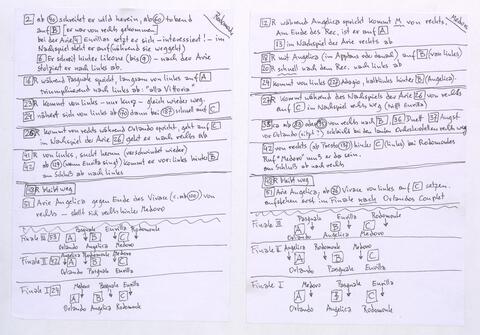 Rodomonte
2 ab 40 schreitet er wild herein, ab 60 tobend
auf B er war von rechts gekommen
bei der Arie 4 Eurillas setzt er sich – interessiert! – im
Nachspiel steht er auf (während sie weggeht)
stolziert er nach links ab.
6 Er scheut hinter Licone (bis 9) – nach der Arie
16 R während Pasquale spricht, langsam von links auf A
triumphierend nach links ab: "alla Vittoria"
23 R kommt von links – nur kurz – gleich wieder weg.
24 nähert sich von links ab 70 dann bei 107 schnell auf C
26 R kommt von rechts während Orlando spricht, geht auf C
im Nachspiel der Arie 26 geht er nach rechts ab
41 R von links, sucht herum (verschwindet wieder)
42 ab 129 (wenn Eurilla singt) kommt er vor: links hinter B
am Schluß ab nach links
R bleibt weg
51 Arie Angelica gegen Ende des Vivace (c. ab 100) von
rechts – stellt sich rechts hinter Medoro
Finale III 53 Pasquale Eurilla Rodomonte
A B C
Orlando Angelica Medoro
Finale II 42 Angelica Rodomonte Medoro
A B C
Orlando Pasquale Eurilla
Finale I 24 Medoro Pasquale Eurilla
A B C
Orlando Angelica Rodomonte
Medoro
12 R während Angelica spricht kommt M von rechts,
Am Ende des Rec. ist er auf A
13 im Nachspiel der Arie rechts ab
18 R mit Angelica auf B (von links)
20 schnell nach dem Rec. nach links ab
24 kommt von links 222 Adagio, halblinks hinter B (Angelica).
27 R kommt während des Nachspiels der Arie 26 von rechts
auf C im Nachspiel rechts weg
von rechts nach B 36 Duett 37 Angst
vor Orlando schließt bei den lauten Orchesterakkorden rechts weg
42 von rechts (ab Presto 137) hinter C (links) bei Rodomontes
Ruf "Medoro" muß er da sein.
am Schluß ab nach rechts
R bleibt weg
51 Arie Angelica, ab 26 Vivace von links auf C setzen.
aufstehen erst im Finale nach Orlandos Couplet
Finale III Pasquale Eurilla Rodomonte
A B C
Orlando Angelica Medoro
Finale II Angelica Rodomonte Medoro
A B C
Orlando Pasquale Eurilla
Finale I Medoro Pasquale Eurilla
A B C
Orlando Angelica Rodomonte